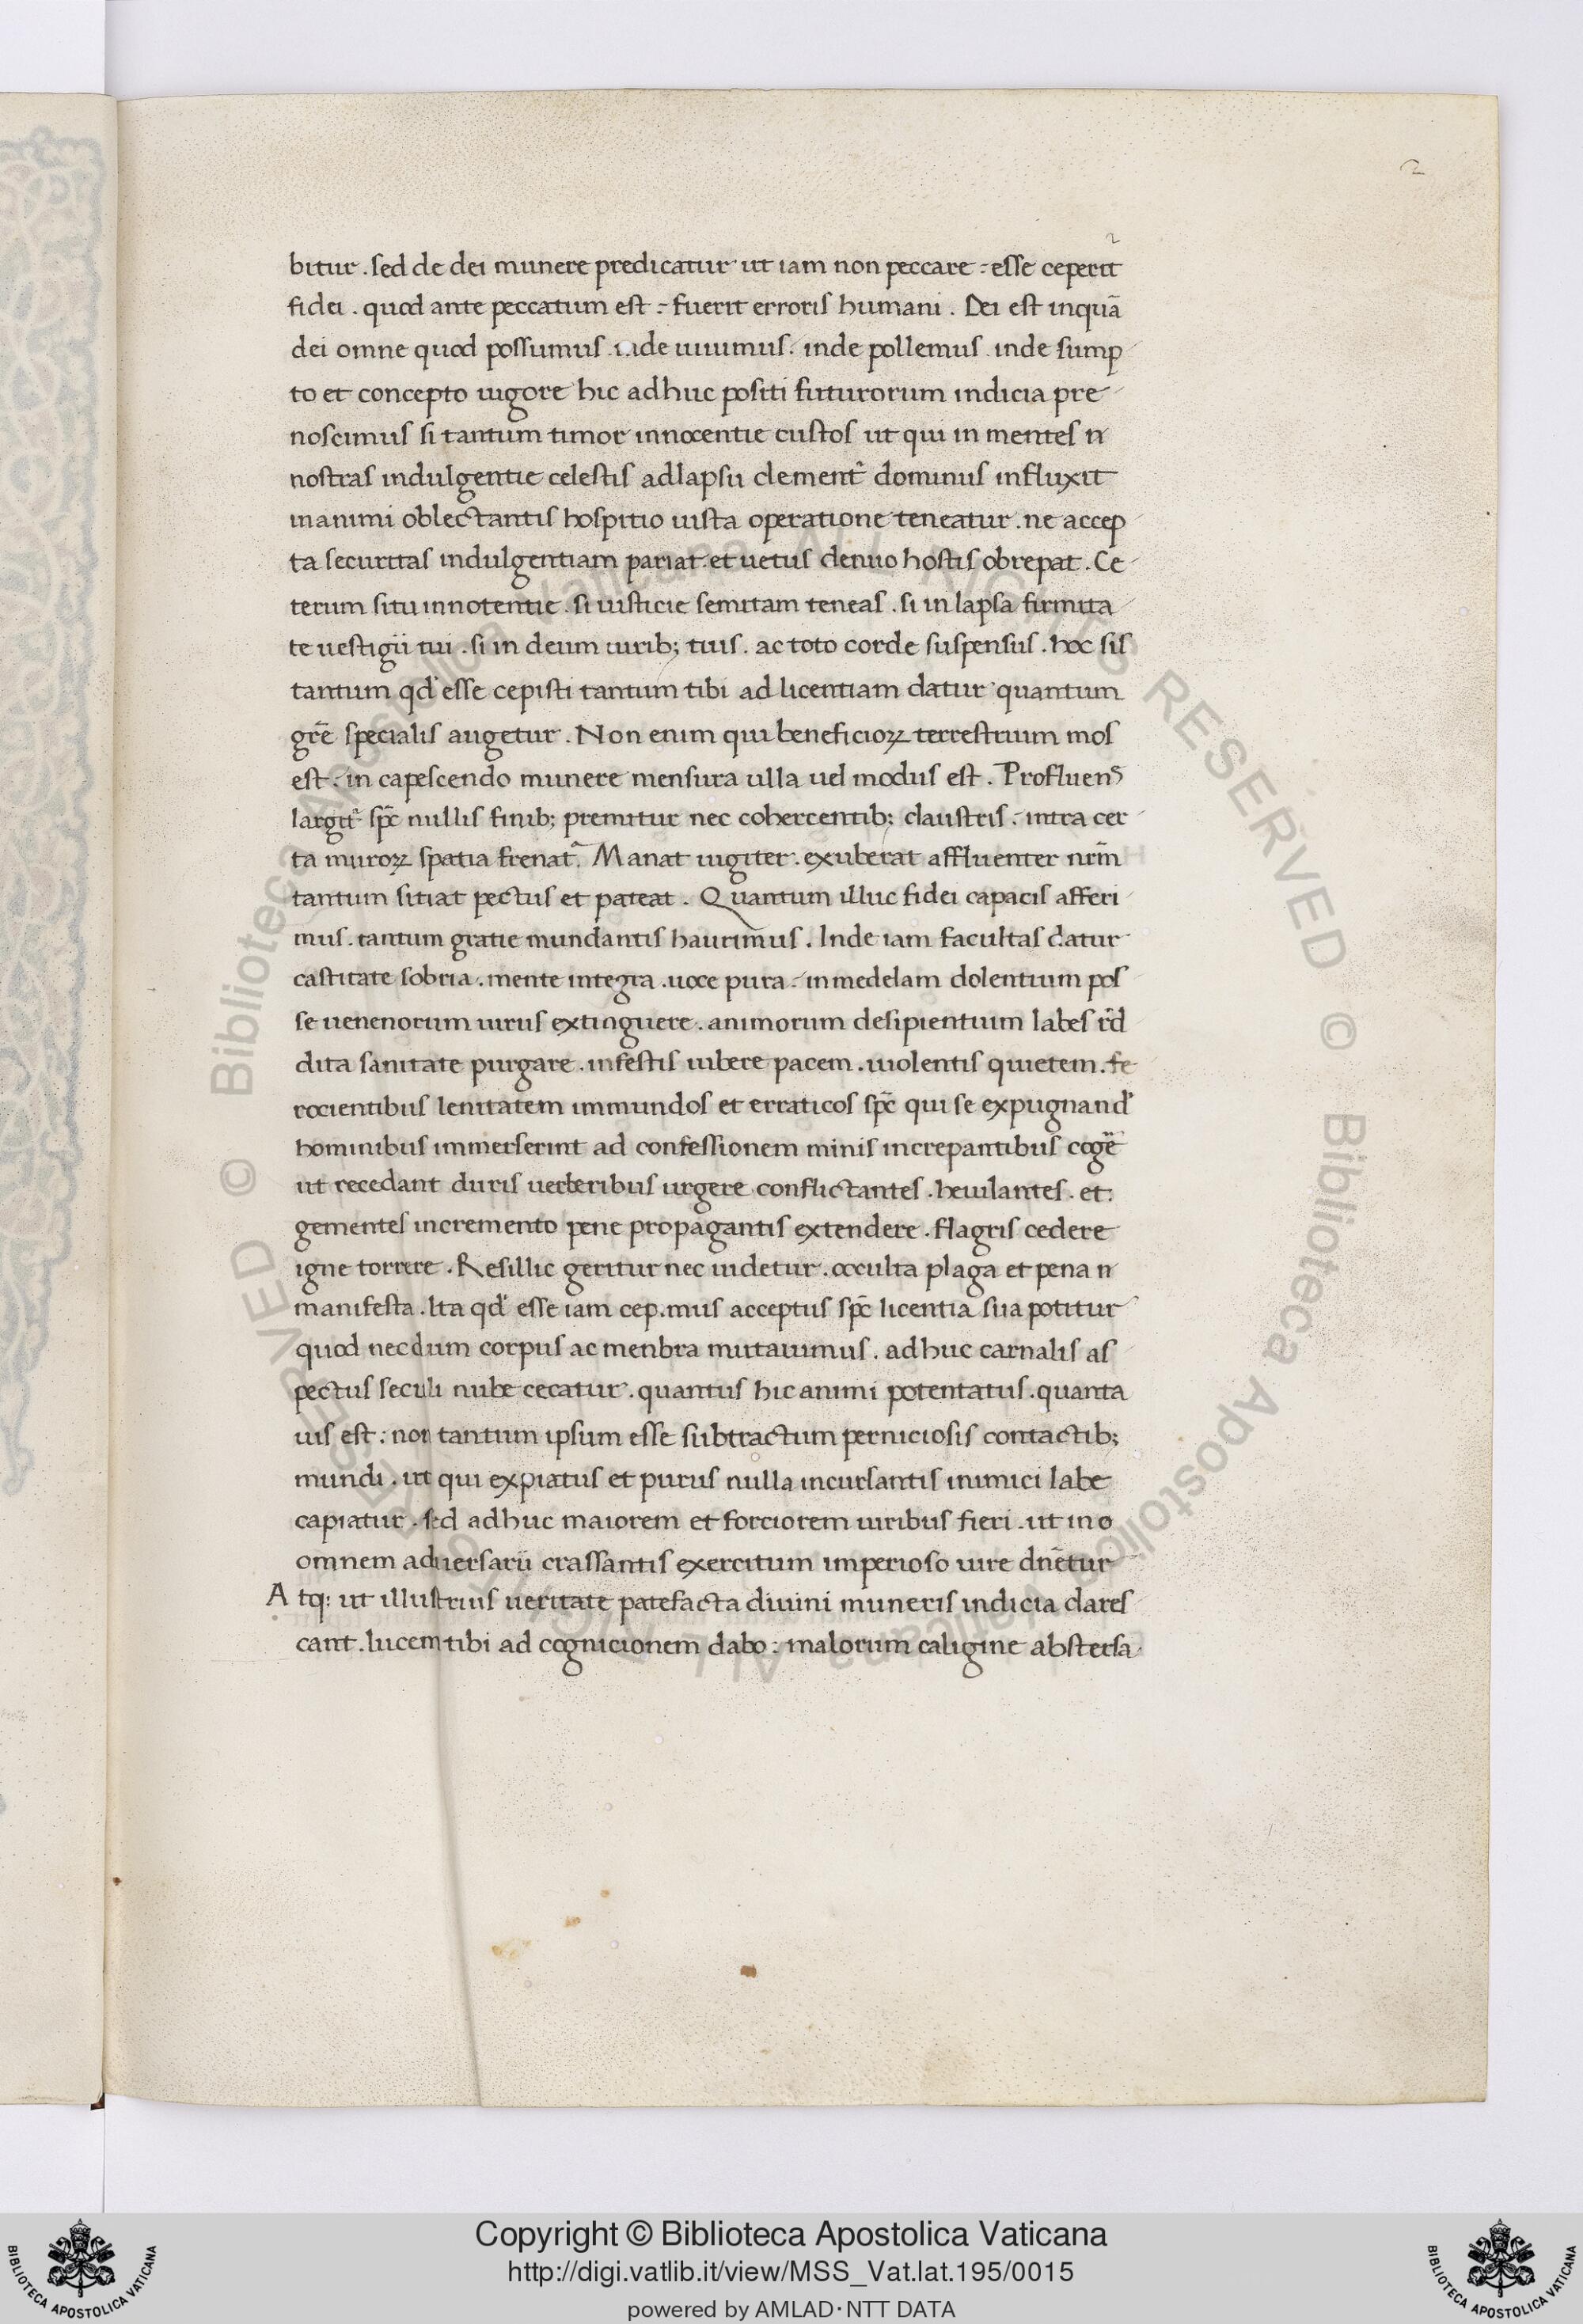 2
2
bitur . sed de dei munere predicatur ut iam non peccare :- esse ceperit
fidei . quod ante peccatum est :- fuerit erroris humani . Dei est inquā
dei omne quod possumus . inde uiuimus : inde pollemus . inde sump
to et concepto uigore hic adhuc positi futurorum indicia pre
noscimus si tantum timor innocentie custos ut qui in mentes n
nostras indulgentie celestis adlapsu clement᷑ dominus influxit
in animi oblectantis hospitio iusta operatione teneatur . ne accep
ta securitas indulgentiam pariat . et uetus denuo hostis obrepat . Ce
terum si tu innotentie . si iusticie semitam teneas . si in lapsa firmita
te uestigii tui . si in deum uirib; tuis . ac toto corde suspensus . hoc sis
tantum qd' esse cepisti tantum tibi ad licentiam datur quantum
gr̄e specialis augetur . Non enim qui beneficioꝝ terrestrium mos
est : in capescendo munere mensura ulla uel modus est . Profluens
largit᷑ spc̄ nullis finib; premitur nec cohercentib; claustris :- intra cer
ta muroꝝ spatia frenat᷑ . Manat iugiter . exuberat affluenter nr̄m
tantum sitiat pectus et pateat . Quantum illuc fidei capacis afferi
mus . tantum gratie mundantis haurimus . Inde iam facultas datur
castitate sobria . mente integra . uoce pura :- in medelam dolentium pos
se uenenorum uirus extinguere . animorum desipientium labes r̄d
dita sanitate purgare . infestis iubere pacem . uiolentis quietem . fe
rocientibus lenitatem immundos et erraticos spc̄ qui se expugnand'
hominibus immerserint ad confessionem minis increpantibus cogē
ut recedant duris uerberibus urgere conflictantes . heiulantes . et
gementes incremento pene propagantis extendere . flagris cedere
igne torrere . Res illic geritur nec uidetur . occulta plaga et pena n
manifesta . Ita qd' esse iam cepimus acceptus spc̄ licentia sua potitur
quod necdum corpus ac menbra mutauimus . adhuc carnalis as
pectus seculi nube cecatur . quantus hic animi potentatus . quanta
uis est : non tantum ipsum esse subtractum perniciosis contactib;
mundi . ut qui expiatus et purus nulla incursantis inimici labe
capiatur . sed adhuc maiorem et forciorem uiribus fieri . ut in o
omnem aduersarii crassantis exercitum imperioso iure dn̄etur
Atq; ut illustrius ueritate patefacta diuini muneris indicia clares
cant . lucem tibi ad cognicionem dabo : malorum caligine abstersa
Copyright © Biblioteca Apostolica Vaticana
http://digi.vatlib.it/view/MSS_Vat.lat.195/0015
powered by AMLAD·NTT DATA
BIBLIOTECA APOSTOLICA VATICANA
BIBLIOTECA APOSTOLICA VATICANA
© Biblioteca Apostolica Vaticana ALL RIGHTS RESERVED © Biblioteca Apostolica Vaticana ALL RIGHTS RESERVED